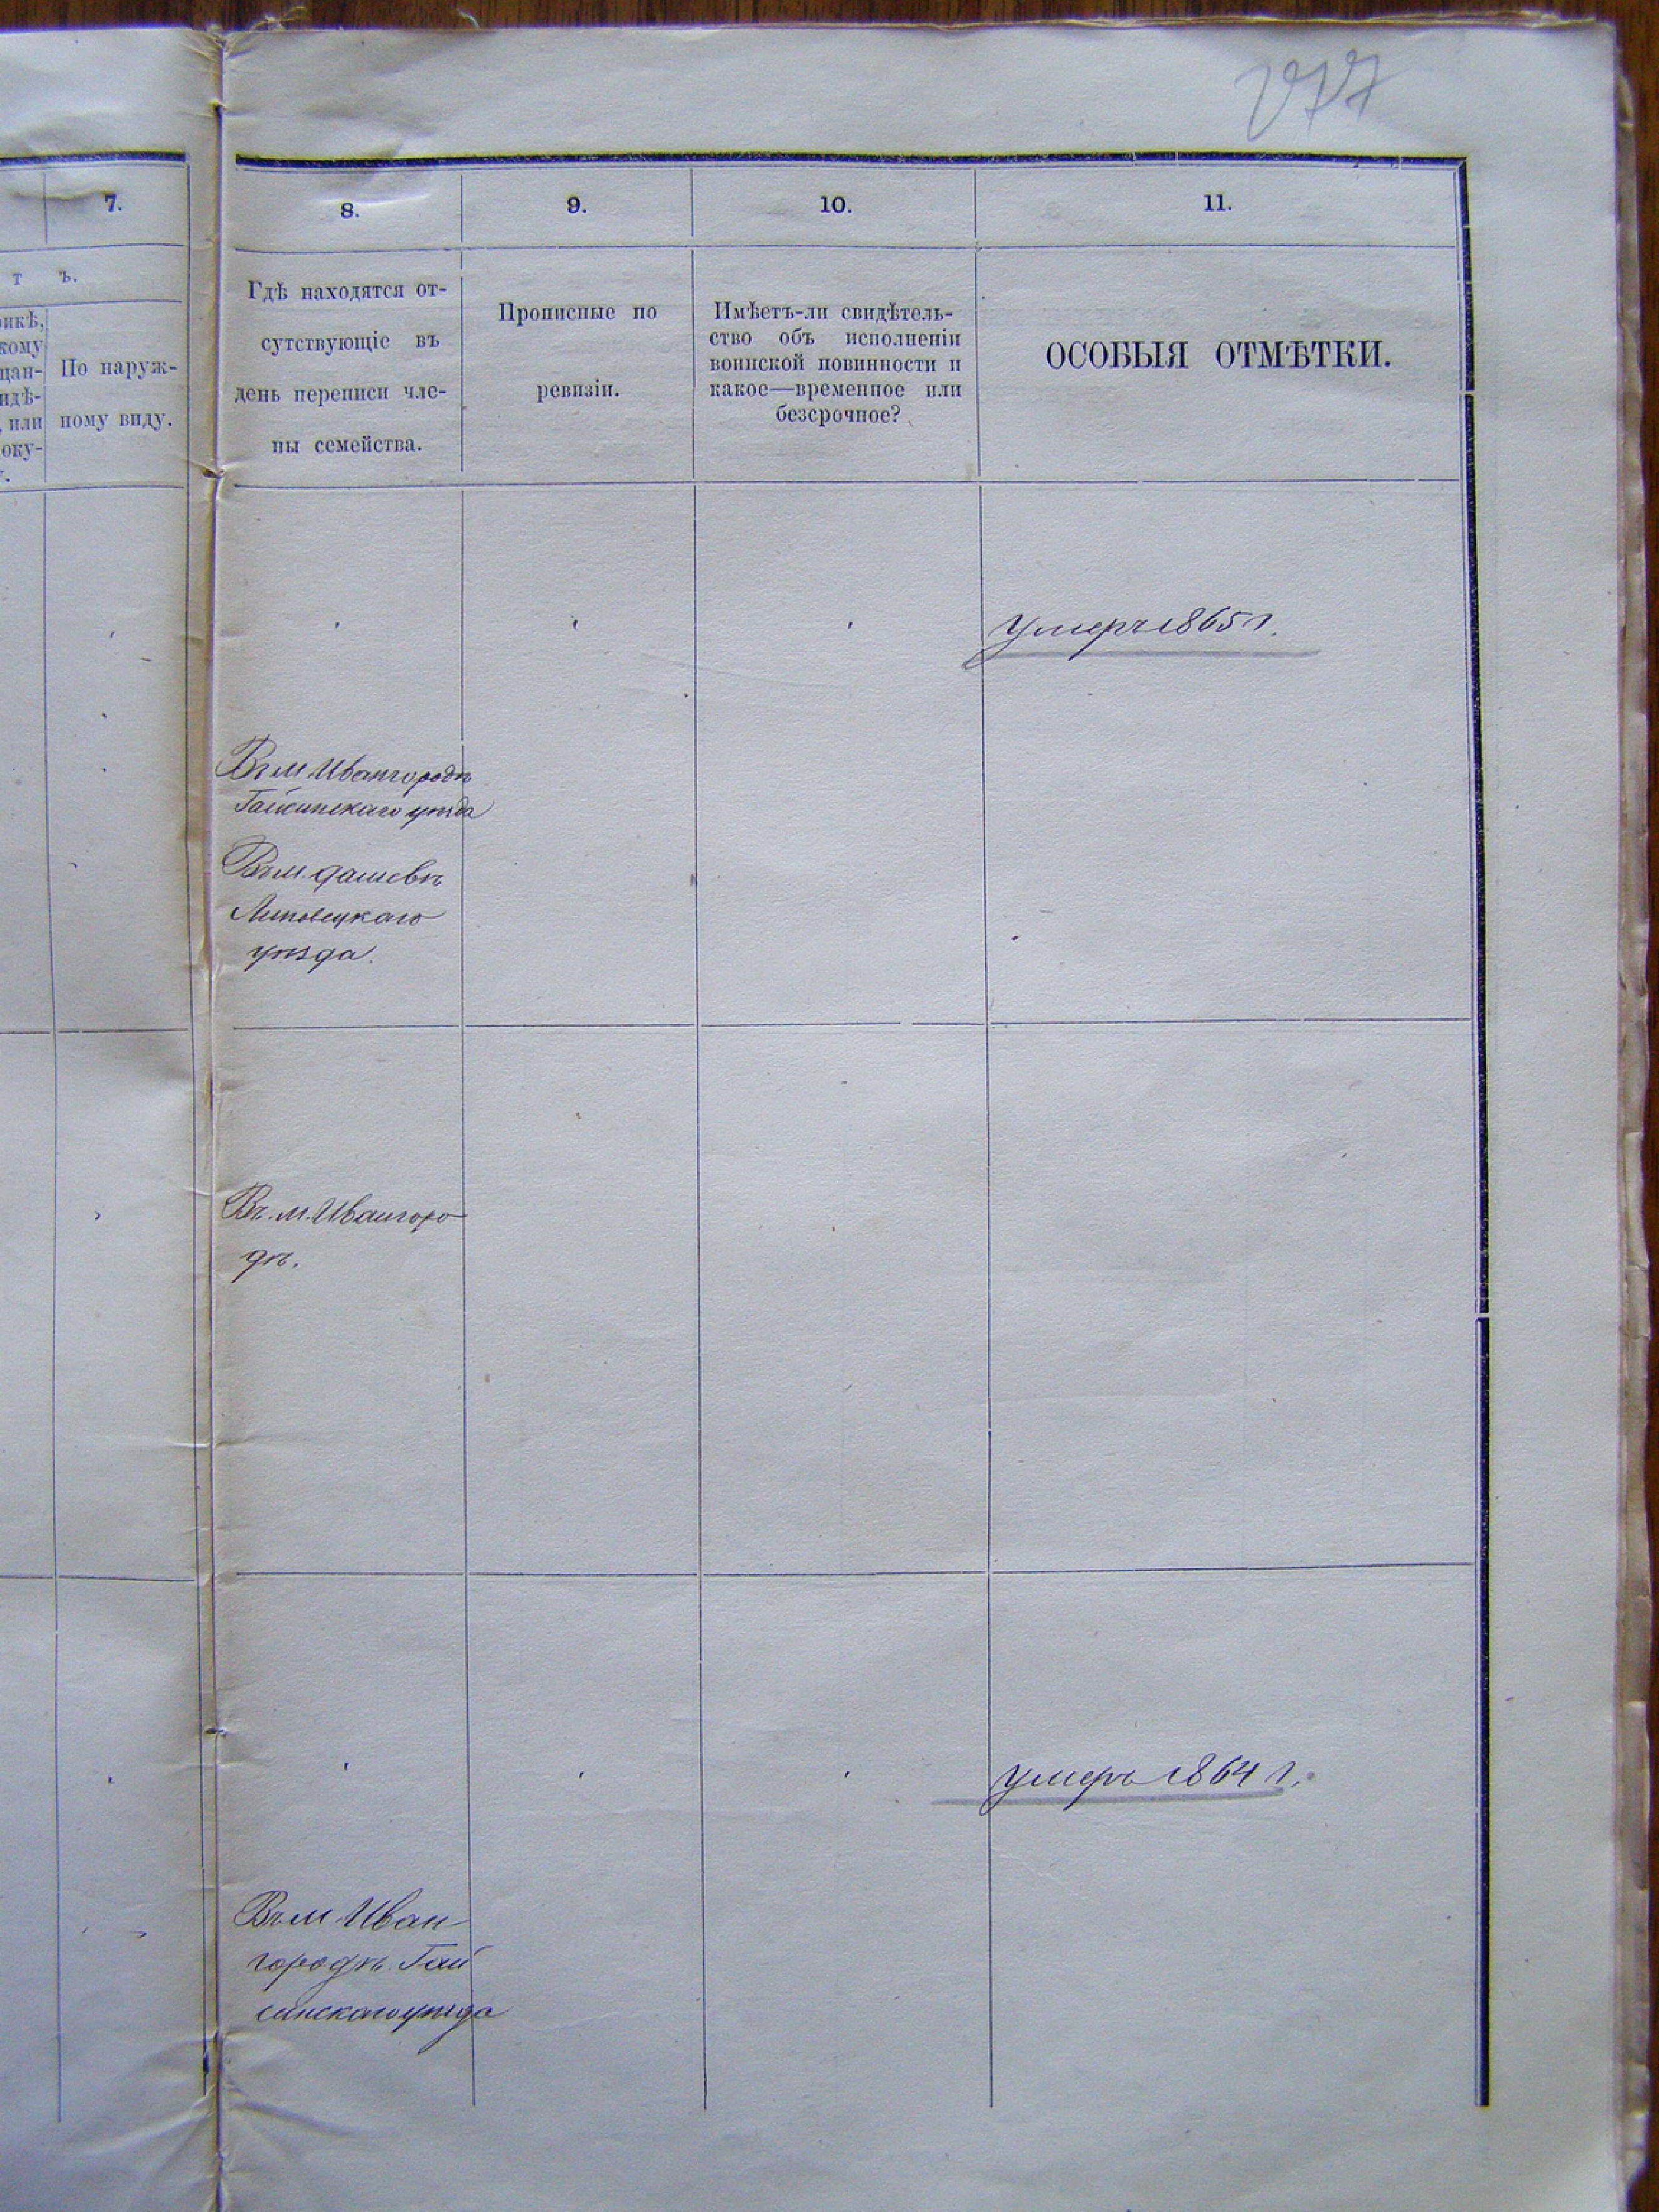 277
7.
8.
9.
10.
11.
т ъ.
По наруж-
ному виду.
Гдѣ находятся от-
сутствующіе въ
день переписи чле-
ны семейства.
Прописные по
ревизіи.
Имѣетъ-ли свидѣтель-
ство объ исполненіи
воинской повинности и
какое—временное или
безсрочное?
ОСОБЫЯ ОТМѢТКИ.
умеръ 1865 г.
Въ м Ивангородѣ
Гайсинскаго уѣзда
Въ м. Дашевѣ
Липовецкаго
уѣзда.
Въ. м. Ивангоро
дѣ.
умеръ 1864 г.
Въ м Иван
городѣ Гай
синскаго уѣзда